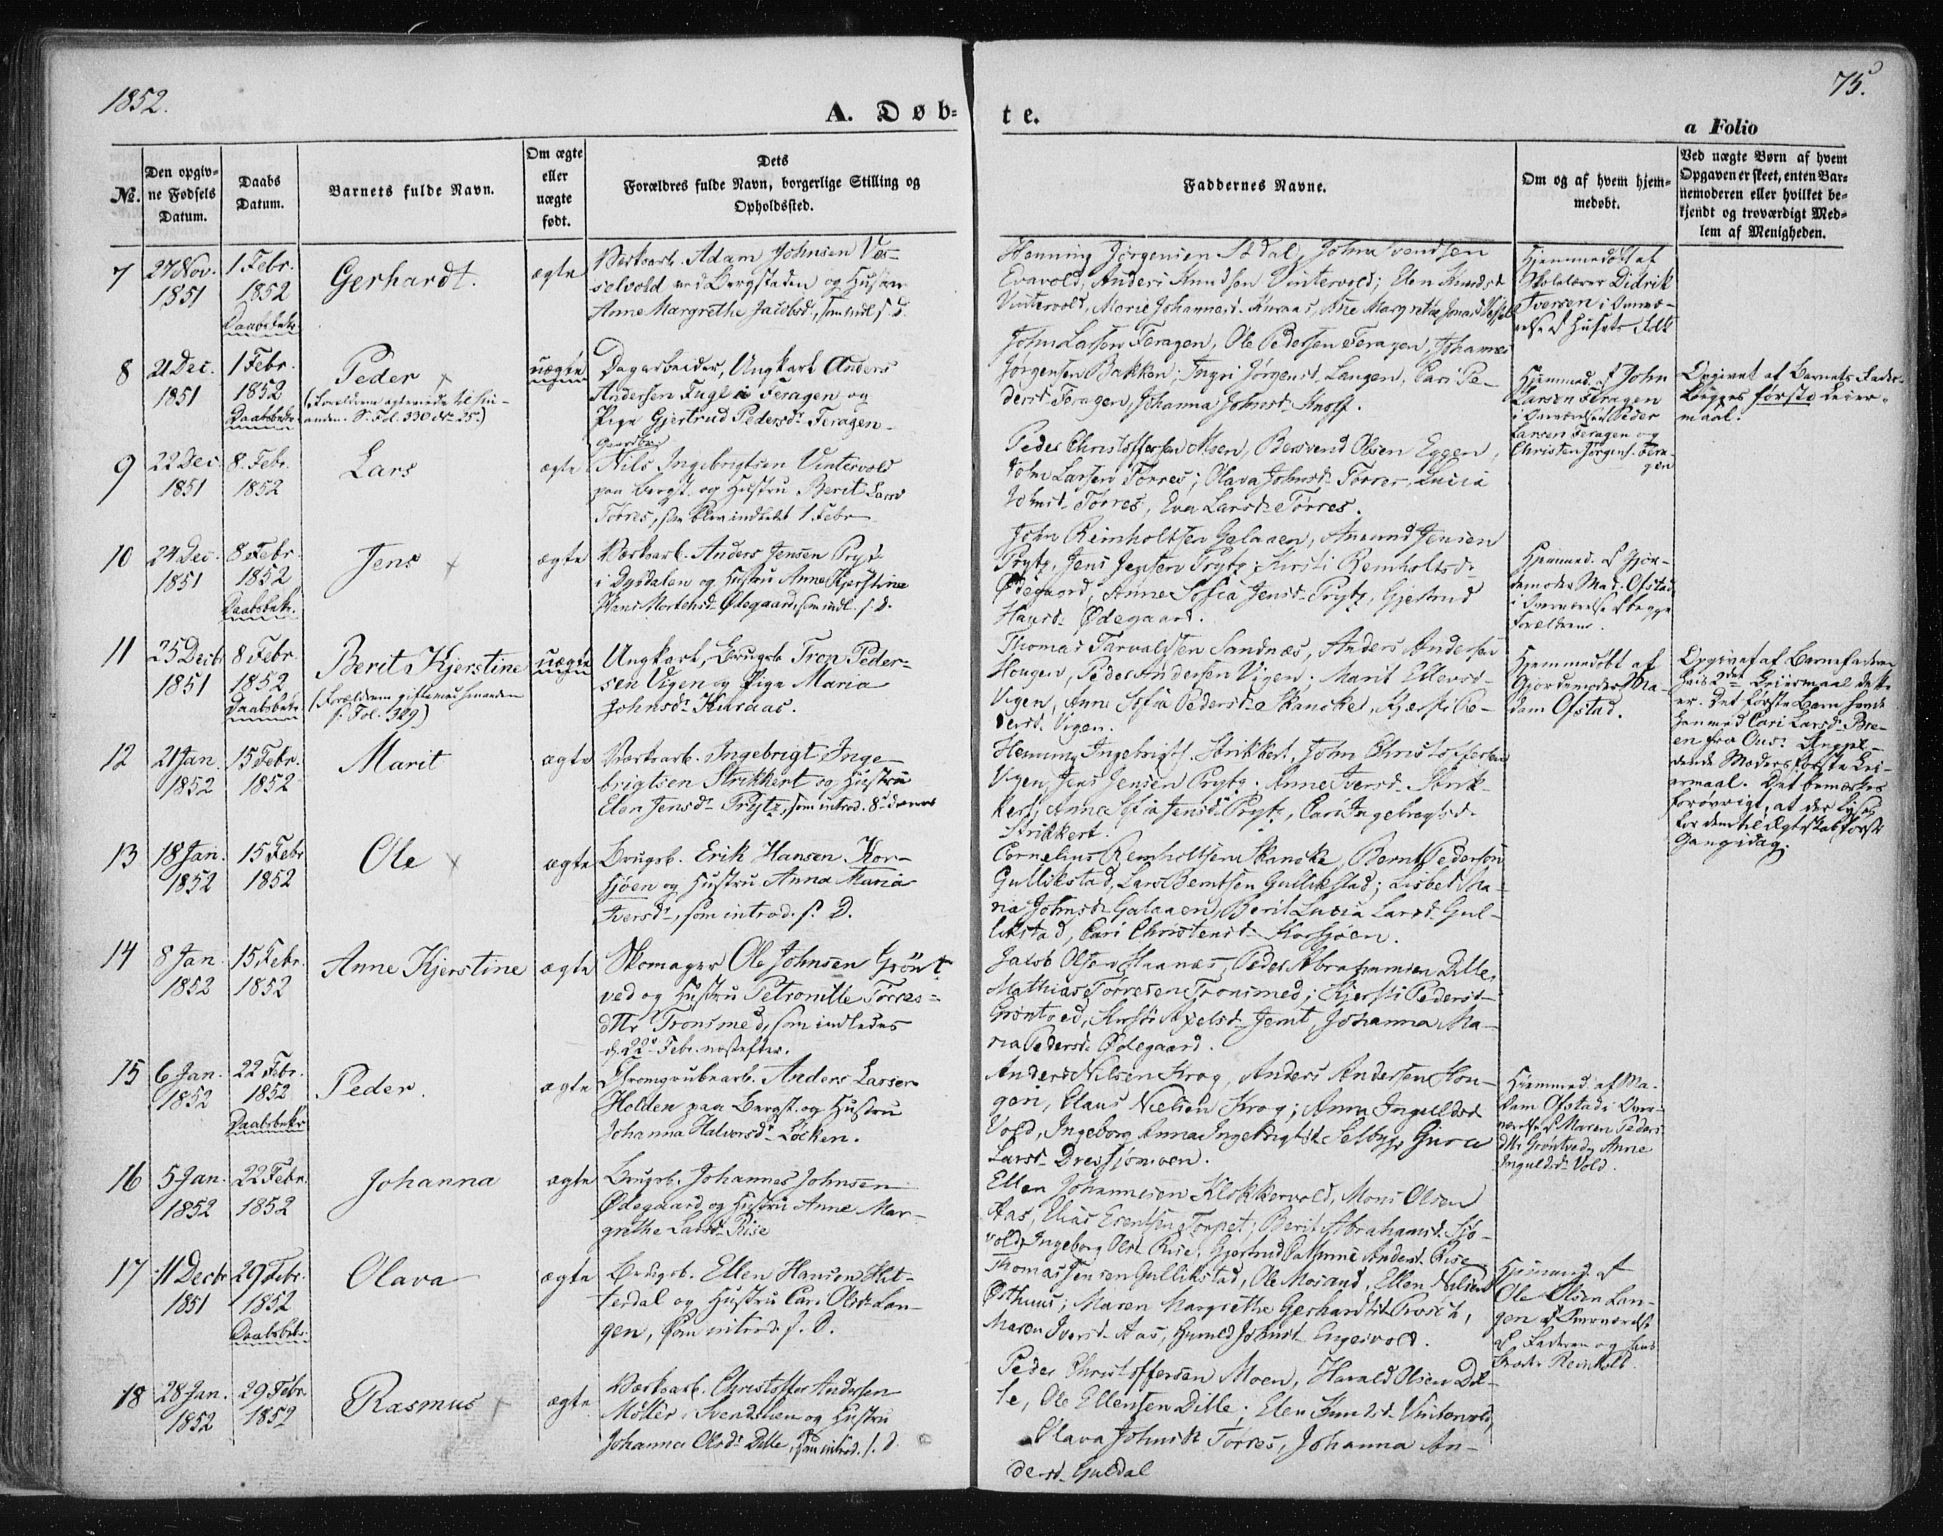 1852.
75.
A. Døb-
te.
a Folio
No.
Den opgiv-
ne Fødsels
Datum.
Daabs
Datum.
Barnets fulde Navn.
Om ægte
eller
uægte
født.
Dets
Forældres fulde Navn, borgerlige Stilling og
Opholdssted.
Faddernes Navne.
Om og af hvem hjem-
medøbt.
Ved uægte Børn af hvem
Opgaven er skeet, enten Bar-
nemoderen eller hvilket be-
kjendt og troværdigt Med-
lem af Menigheden.
7
27 Nov.
1851
1 Febr.
1852
Daabsbekr.
Gerhardt.
ægte
Værksarb. Adam Johnsen Ves-
selvold ved Bergstaden og Hustru
Anne Margrethe Jacobsd., som indl. s. D.
Henning Jørgensen Sødal, John Svendsen
Evavold, Anders Knudsen Vintervold; Elen Knudsd.
Vintervold, Marie Johannesd. Kuraas, Ane Margrethe Jonasd.
Hjemmedøbt af
Skolelærer Didrik
Iversen i Overvæ-
relse af Husets Folk
8
21 Dec.
1851
1 Febr.
1852
Daabsbekr.
Peder
(Forældrene ægteviede til hin-
anden. S. Fol. 330 Nr. 25.)
uægte
Dagarbeider, Ungkarl Anders
Andersen Fugl i Feragen og
Pige Gjertrud Pedersdr. Feragen
John Larsen Feragen, Ole Pedersen Feragen, Johannes
Jørgensen Bakken; Ingri Jørgensd. Langen, Cari Pe-
dersd. Feragen, Johanna Johnsd.
Hjemmed. af John
Larsen Feragen
i Overværelse af Peder
Larsen Feragen og
Christen Jørgens. Fera-
gen
Opgivet af Barnets Fader.
Begges første Leier-
maal.
9
22 Dec
1851
8. Febr.
1852
Lars
ægte
Nils Ingebrigtsen Vintervold
paa Bergst. og Hustru Berit Larsd.
Torres, som blev indledet 1 Febr
Peder Christoffersen Moen, Bersvend Olsen Eggen,
John Larsen Torres; Olava Johnsd. Torres, Lucia
Johnsd. Torres, Eva Larsd. Torres.
10
24 Dec.
1851
8 Febr.
1852
Daabsbekr.
Jens
ægte
Værksarb. Anders Jensen Prytz
i Dysdalen og Hustru Anne Kjerstine
Hans Mortensd. Ødegaard, som indl. s. D.
John Reinholtsen Galaaen, Amund Jensen
Prytz, Jens Jensen Prytz, Kirsti Reinholtsd.
Ødegaard, Anne Sofia Jensd. Prytz, Gjertrud
Hansd. Ødegaard.
Hjemmed. af Gjor-
demoder Mad. Ofstad
i Overværelse af begge
Forældrene.
11
25 Decbr
1851
8 Febr.
1852
Daabsbekr.
Berit Kjerstine
(Forældrene gifte med hinanden
s. Fol. 329)
uægte
Ungkarl, Brugsb. Tron Peder-
sen Vigen og Pige Maria
Johnsdr. Kuraas.
Thomas Tarvaldsen Sandnæs, Anders Andersen
Hougen, Peder Andersen Vigen; Marit Ellensd.
Vigen, Anne Sofia Pedersd. Skancke, Kjersti Pe-
dersd. Vigen.
Hjemmedøbt af
Gjordemoder Ma-
dam Ofstad.
Opgivet af Barnefaderen
hvis 2det Leiermaal dette
er. Det første Barn havde
han med Cari Larsd. Bre-
en fra Ous. Angjel-
dende Moders første Lei-
ermaal. Det bemærkes
forøvrigt, at der lyses
for dem til Ægteskab første
Gang idag.
12
21 Jan.
1852
15 Febr.
1852
Marit
ægte
Værksarb. Ingebrigt Inge-
brigtsen Strikkert og Hustru
Elen Jensdr. Prytz, som introd. 8 d
Henning Ingebrigts. Strikkert, John Christoffersen
Vigen, Jens Jensen Prytz; Anne Iversd. Strik-
kert, Anne Sofia Jensd. Prytz, Cari Ingebrigtsd.
Strikkert.
13
18 Jan.
1852
15 Febr
1852
Ole
ægte
Brugsb. Erik Hansen Kor-
sjøen og Hustru Anna Maria
Iversdr., som introd. s. D.
Cornelius Reinholtsen Skancke, Bernt Pedersen
Gullikstad, Lars Berntsen Gullikstad; Lisbet Ma-
ria Johnsd. Galaaen, Berit Lucia Larsd. Gul-
likstad, Cari Christensd. Korsjøen.
14
8 Jan.
1852
15 Febr.
1852
Anne Kjerstine
ægte
Skomager Ole Johnsen Grønt-
ved og Hustru Petronille Torres-
dttr Tronsmed, som indledes
d. 22. Febr. næstefter.
Jacob Olsen Haanæs, Peder Abrahamsen Dille,
Mathias Torresen Tronsmed; Kjersti Pedersd.
Grøntved, Kirsti Axelsd. Jemt, Johanna Ma-
ria Pedersd. Ødegaard.
15
6 Jan.
1852
22 Febr.
1852
Daabsbekr
Peder.
ægte
Chromgrubearb. Anders Larsen
Holden paa Bergst. og Hustru
Johanna Halvorsdr. Løcken.
Anders Nilsen Krog, Anders Andersen Hou-
gen, Claus Nielsen Krog; Anne Ingulfsd.
Vold, Ingeborg Anna Ingebrigtsd. Selboe, Gura
Larsd. Drevsjømoen.
Hjemmed. af Ma-
dam Ofstad i Over-
værelse af Maren Peders-
dttr Grøntved og Anne
Ingulfsd. Vold.
16
5 Jan.
1852
22 Febr.
1852
Johanna
ægte
Brugsb. Johannes Johnsen
Ødegaard og Hustru Anne Mar-
grethe Larsd. Rise
Ellen Johannesen Klokkervold, Mons Olsen
Aas, Elias Erentsen Torpet; Berit Abrahamsd. Sjø-
vold, Ingeborg Olsd. Rise, Gjertrud Andersd. Rise
17
11 Decbr
1851
29 Febr.
1852
Daabsbekr.
Olava
ægte
Brugsb. Ellen Hansen Hit-
terdal og Hustru Cari Olsd. Lan-
gen, som introd. s. D.
Thomas Jensen Gullikstad, Ole Morand, Ellen Nilsen
Østhuus; Maren Margrethe Gerhardtsd. Prosch,
Maren Iversd. Aas, Gunild Johnsd. Engesvold.
Hjemmed. af
Ole Olsen Lan-
gen i Overværelse
af Faderen og hans
Broder Reinholt.
18
28 Jan.
1852
29 Febr.
1852
Rasmus
ægte
Værksarb. Christoffer Andersen
Møller i Svendslien og Hustru
Johanna Olsdr. Dille, som introd. s. D.
Peder Christoffersen Moen, Harald Olsen Dil-
le, Ole Ellensen Dille; Elen Knudsd. Vintervold,
Olava Johnsd. Torres, Johanna An-
dersd. Guldal